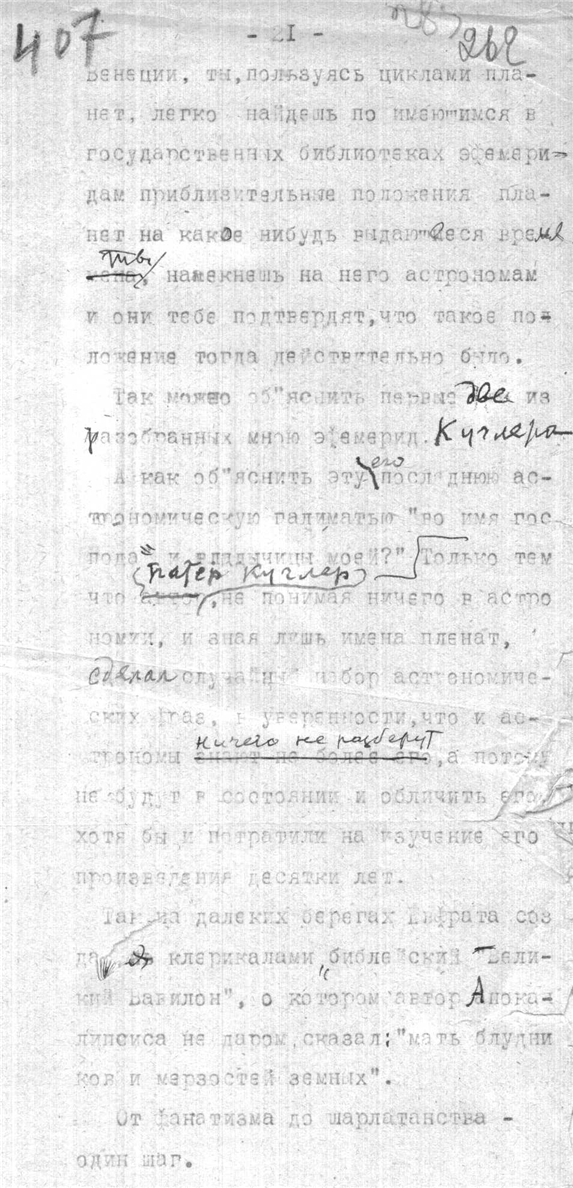 407
- 21 -
262
Венеции, ты,пользуясь циклами пла-
нет, легко найдешь по имеющимся в
государственных библиотеках эфемери-
дам приблизительные положения пла-
нет на какое нибудь выдающееся время
мена, намекнешь на него астрономам
и они тебе подтвердят,что такое по-
ложение тогда действительно было.
Так можно об"яснить первые две из
разобранных мною эфемерид. Куглера
А как об"яснить эту его последнюю ас-
трономическую галиматью "во имя гос-
пода" и владычицы моей?" Только тем
"патер Куглер
что автор, не понимая ничего в астро
номии, и зная лишь имена пленат,
сделал случайный набор астрономиче-
ских фраз, в уверенности,что и ас-
ничего не разберут
трономы знают не более его,а потому
не будут в состоянии и обличить его,
хотя бы и потратили на изучение его
произведения десятки лет.
Так на далеких берегах Евфрата соз
да клерикалами библейский "Вели-
кий Вавилон", о котором автор Апока-
липсиса не даром сказал: "мать блудни
ков и мерзостей земных".
От фанатизма до шарлатанства -
один шаг.